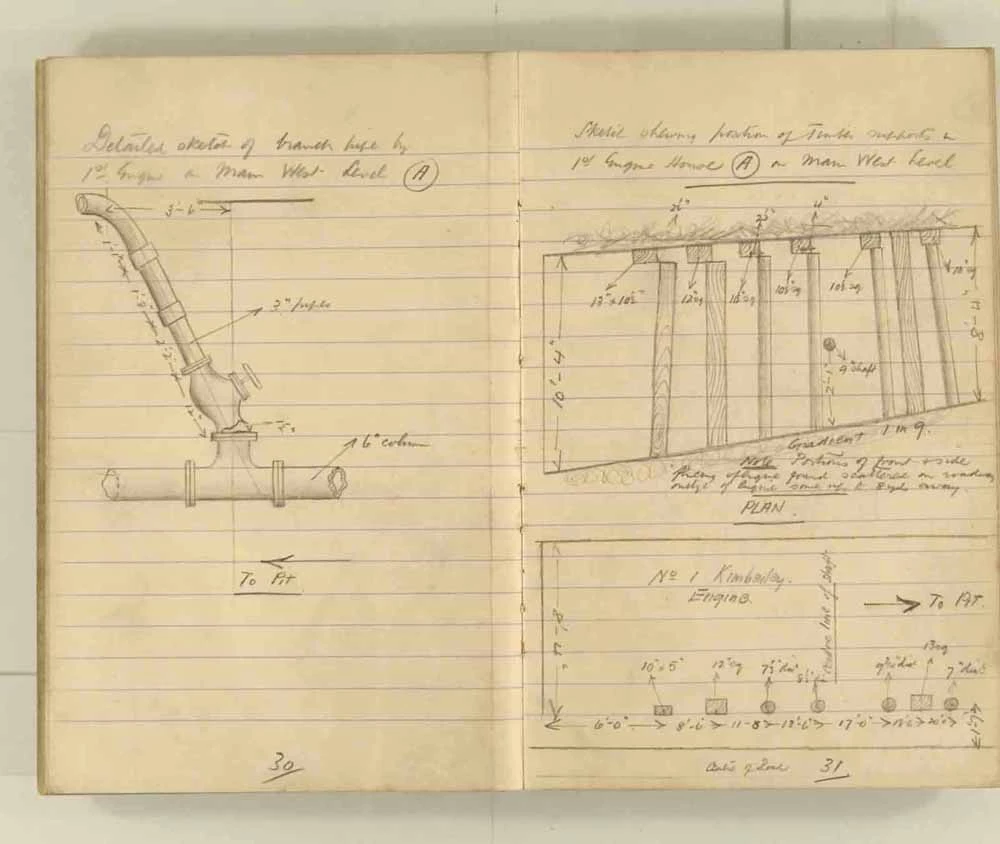 Detailed sketch of branch pipe by
1st Engine on Main West Level (A)
3'-6"
3" pipes
12"
6" column
To Pit
30
Sketch shewing position of Timber supports in
1st Engine House (A) on Main West Level
4"
13" x 10½"
12" sq
10½ sq
10½ sq
10'-4"
11'-8"
9" shaft
2'-1"
Gradient 1 in 9.
Note Portions of front & side
of Engine found scattered on roadway
of Engine some up to 8 yds away.
PLAN.
No 1 Kimberley.
Engine.
Centre line of Shaft
To Pit.
11'-8"
10" x 5"
12" sq
7½" dia
13 sq
7" dia
6'-0"
8'-6"
11-8
12'-6"
17'-0"
1'-7"
Centre of Road
31